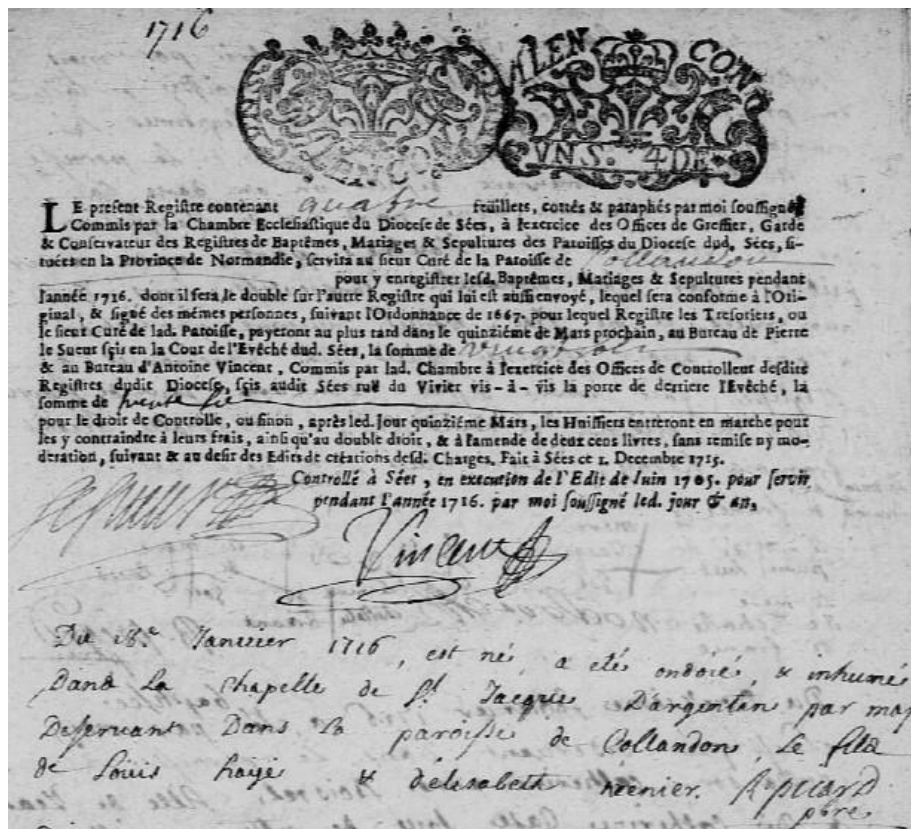 1716
ALENCON
VNS. 4 DE.
LE present Registre contenant quatre feuillets, cottés & paraphés par moi soussigné
Commis par la Chambre Ecclesiastique du Diocese de Sées, à l'exercice des Offices de Greffier, Garde
& Conservateur des Registres de Baptêmes, Mariages & Sepultures des Paroisses du Diocese dud. Sées, si-
tuées en la Province de Normandie, servira au sieur Curé de la Paroisse de Collandon
pour y enregistrer lesd. Baptêmes, Mariages & Sepultures pendant
l'année 1716. dont il sera le double sur l'autre Registre qui lui est aussi envoyé, lequel sera conforme à l'Ori-
ginal, & signé des mêmes personnes, suivant l'Ordonnance de 1667. pour lequel Registre les Tresoriers, ou
le sieur Curé de lad. Paroisse, payeront au plus tard dans le quinziéme de Mars prochain, au Bureau de Pierre
le Sueur sçis en la Cour de l'Evêché dud. Sées, la somme de
& au Bureau d'Antoine Vincent, Commis par lad. Chambre à l'exercice des Offices de Controlleur desdits
Registres dudit Diocese, sçis audit Sées ruë du Vivier vis-à-vis la porte de derriere l'Evêché, la
somme de
pour le droit de Controlle, ou sinon, après led. Jour quinziéme Mars, les Huissiers entreront en marche pour
les y contraindre à leurs frais, ainsi qu'au double droit, & à l'amende de deux cens livres, sans remise ny mo-
deration, suivant & au desir des Edits de créations desd. Charges. Fait à Sées ce 1. Decembre 1715.
Controllé à Sées, en execution de l'Edit de Juin 1705. pour servir
pendant l'année 1716. par moi soussigné led. jour & an,
Vincent
Du 18e Janvier 1716, est né, a eté ondoié, & inhumé
Dans La chapelle de St. Jacques D'argenten par moy
Deservant Dans La paroisse de Collandon, Le fils
de Loüis haye & d'elisabeth Renier. picard
pbre